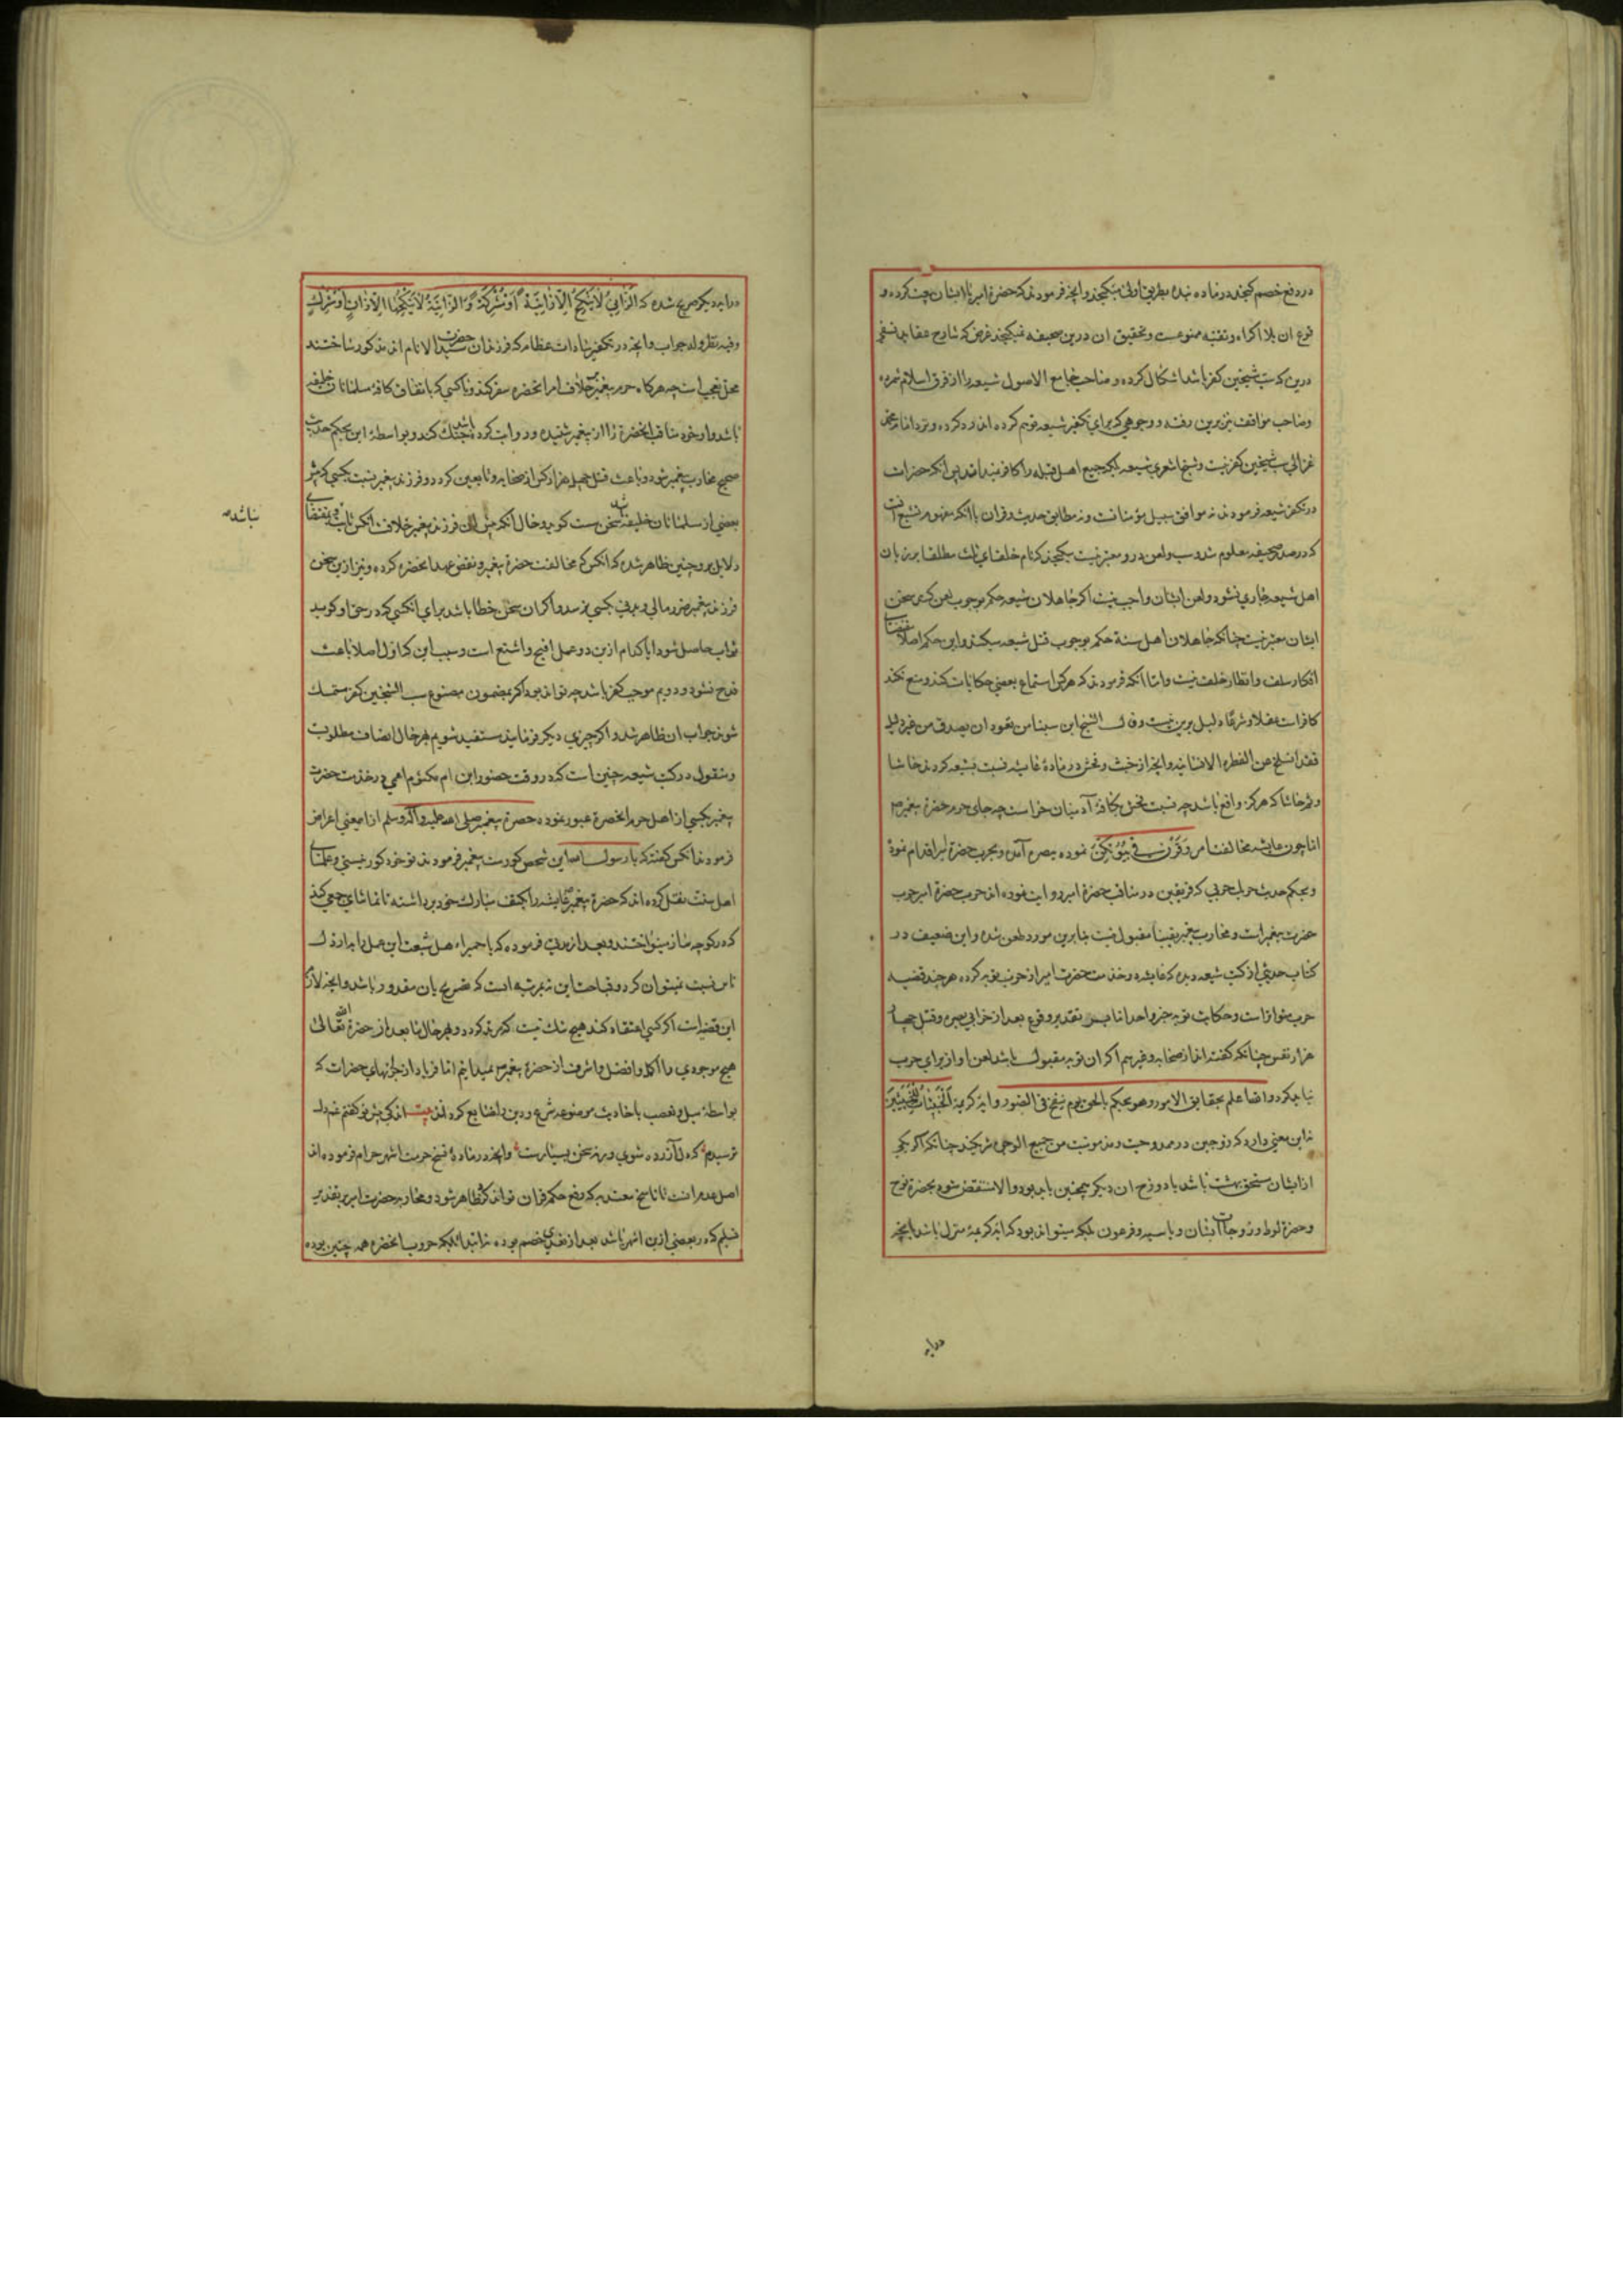 در دفع خصم گنجد در ماده نبذه بطریق اولی میگنجد وانچه فرمودند که حضرة امیر با ایشان بیعت کرده و
فرع ان بلا اکراه و تقیه ممنوعست و تحقیق ان درین صحیفه نمیگنجد غرض که شارح عقاید نسفی
درین که سب شیخین کفر باشد اشکال کرده و صاحب جامع الاصول شیعه را از فرق اسلام شمرده
و صاحب مواقف نیز برین رفته و وجوهی که برای تکفیر شیعه توهم کرده اند رد کرده و نزد امام محمد
غزالی سب شیخین کفر نیست و شیخ اشعری شیعه بلکه جمیع اهل قبله را کافر نمیداند پس انکه حضرات
در تکفیر شیعه فرمودند نه موافق سبیل مؤمنانست و نه مطابق حدیث و قران با انکه مفهوم تشیع انست
که در صدر صحیفه معلوم شد و سب و لعن درو معتبر نیست میگنجد که نام خلفای ثلث مطلقا بر زبان
اهل شیعه جاری نشود و لعن ایشان واجب نیست اگر جاهلان شیعه حکم بوجوب لعن کنند سخن
ایشان معتبر نیست چنانکه جاهلان اهل سنة حکم بوجوب قتل شیعه میکنند و این حکم اصلا مقتضای
افکار سلف و انظار خلف نیست و اما انکه فرمودند که هرکس استماع بعضی حکایات کند و منع نکند
کافر است عقلا و شرعا دلیل برین نیست و قال الشیخ ابن سینا من تعود ان یصدق من غیر دلیل
فقد انسلخ عن الفطرة الانسانیه وانچه از خبث و فحش در مادۀ عایشه نسبت بشیعه کردند حاشا
و ثم حاشا که هرگز واقع باشد چه نسبت فحش بکافۀ آدمیان حرامست چه جای حرم حضرة پیغمبر ص
اما چون عایشه مخالفت امر وَقَرْنَ فِي بُيُوتِكُنَّ نموده ببصره آمده و بحرب حضرة امیر اقدام نموده
و بحکم حدیث حربک حربی که فریقین در مناقب حضرة امیر روایت نموده اند حرب حضرة امیر حرب
حضرت پیغمبر است و محارب پیغمبر یقینا مقبول نیست بنابرین مورد طعن شده و این ضعیف در
کتاب حدیثی از کتب شیعه دیده که عایشه در خدمت حضرت امیر از حرب توبه کرده هرچند قضیه
حرب متواتر است و حکایت توبه خبر واحد اما بر تقدیر وقوع بعد از خرابی بصره و قتل چهار
هزار نفس چنانکه گفته اند از صحابه و غیرهم اگر ان توبه مقبول باشد لعن او از برای حرب
نباید کرد والله اعلم بحقایق الامور وهو یحکم بالحق یوم ینفخ فی الصور وایۀ کریمۀ اَلْخَبِيثَاتُ لِلْخَبِيثِينَ
نه این معنی دارد که زوجین در ممدوحیت و مذمومیت من جمیع الوجوه شریکند چنانکه اگر یکی
از ایشان مستحق بهشت باشد یا دوزخ ان دیگر همچنین باید بود والا منتقض شود بحضرة نوح
و حضرة لوط و زوجات ایشان و باسیه و فرعون بلکه میتواند بود که ایۀ کریمه منزل باشد بانچه
در ایۀ
در ایۀ دیگر صریح شده که اَلزَّانِي لَا يَنْكِحُ إِلَّا زَانِيَةً أَوْ مُشْرِكَةً وَالزَّانِيَةُ لَا يَنْكِحُهَا إِلَّا زَانٍ أَوْ مُشْرِكٌ
وفیه نظر وله جواب وانچه در تکفیر سادات عظام که فرزندان حضرت سید الانام اند مذکور ساختند
محل تعجب است چه هرگاه حرم پیغمبر خلاف امر انحضره سفر کند و با کسی که باتفاق کافۀ مسلمانان خلیفه
باشد و او خود مناقب انحضرة را از پیغمبر شنیده و روایت کرده باشد جنگ کند و بواسطۀ این بحکم حدیث
صحیح محارب پیغمبر شود و باعث قتل چهل هزار کس از صحابه و تابعین گردد و فرزند پیغمبر نسبت بکسی که پیش
بعضی از مسلمانان خلیفه باشد سخن سست گوید و حال انکه پیش این فرزند پیغمبر خلاف انکس ثابت نباشد و بمقتضای
نباشد
دلایل برو چنین ظاهر شده که انکس که مخالفت حضرة پیغمبر و نقض عهد انحضره کرده و نیز ازین سخن
فرزند پیغمبر ضرر مالی و بدنی بکسی نرسد و اگر ان سخن خطا باشد برای انکسی که در حق او گوید
ثواب حاصل شود ایا کدام ازین دو عمل اقبح و اشنع است و سبب این که اول اصلا باعث
قدح نشود و دویم موجب کفر باشد چه تواند بود اگر بمضمون مصنوع سب الشیخین کفر متمسک
شوند جواب ان ظاهر شد و اگر چیزی دیگر فرمایند مستفید شویم بهرحال انصاف مطلوبست
و منقول در کتب شیعه چنین است که در وقت حضور ابن ام مکتوم اعمی در خدمت حضرت
پیغمبر یکسی از اهل حرم انحضرة عبور نموده حضرة پیغمبر صلی الله علیه وآله وسلم از این معنی اعراض
فرمودند انکس گفته که یا رسول الله این شخص کورست پیغمبر فرمودند تو خود کور نیستی و علمای
اهل سنت نقل کرده اند که حضرة پیغمبر عایشه را بکتف مبارک خود برداشته تا تماشای جمعی کند
که در کوچه ساز مینواختند و بعد از مدتی فرموده که یا حمیراء هل شبعت این عمل را بارذل
ناس نسبت نمیتوان کرد و قباحت این نه بمرتبه ایست که تقریر بان مقدور باشد وانچه لازم
این قضیه است اگر کسی اعتقاد کند هیچ شک نیست که مرتد گردد و بهرحال ما بعد از حضرة الله تعالی
هیچ موجودی را اکمل و افضل و اشرف از حضرة پیغمبر ص نمیدانیم اما فریاد از جرأتهای حضرات که
بواسطۀ میل و تعصب باحادیث موضوعه شرع و دین را ضایع کرده اند بیت اندکی پیش تو گفتم غم دل
ترسیدم که دل آزرده شوی ورنه سخن بسیارست وانچه در مادۀ فسخ حرمت اشهر حرام فرموده اند
اصل عدم انست تا ناسخ معتد به که رفع حکم قران تواند کرد ظاهر شود و محاربه حضرت امیر بر تقدیر
تسلیم که در بعضی ازین اشهر باشد بعد از تعدی خصم بوده نه ابتدا بلکه حروب انحضره همه چنین بوده